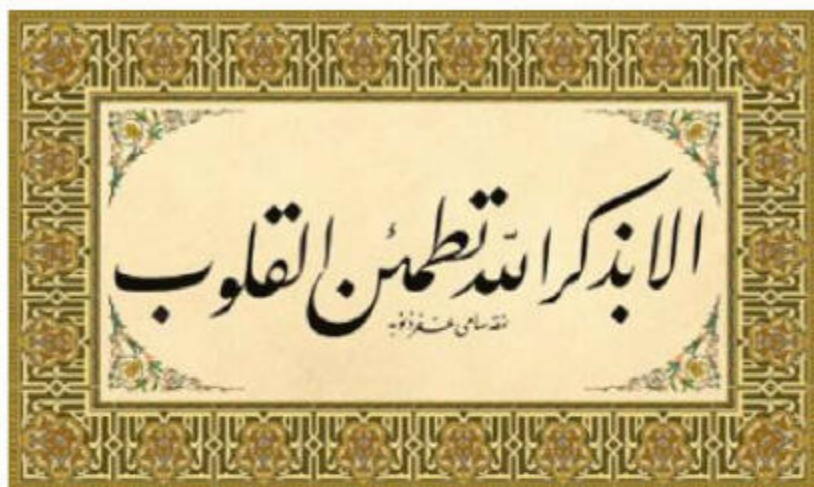 الا بذكر الله تطمئن القلوب
نمقه سامى غفر ذنوبه